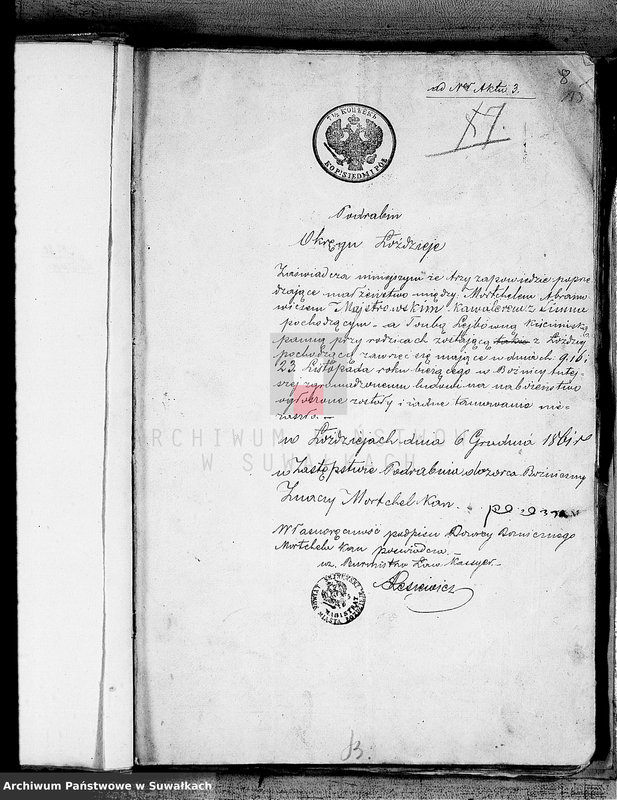 8
ad Nr Aktu 3.
17.
7½ KOPIEEK
KOP: SIEDM I PÓŁ
Podrabin
Okręgu Łoździeje
Zaświadcza niniejszym że trzy zapowiedzie poprze-
dzające małżeństwo między Mortchelem Abramo-
wiczem Majstrowskim kawalerem z Simna
pochodzącym a Toubą Lejbówną
panną przy rodzicach zostającą z Łoździej
pochodzącą zawrzeć się mające w dniach 9. 16 i
23. Listopada roku bieżącego w Bóżnicy tutej-
szej zgromadzonemu ludowi na nabożeństwo
ogłoszone zostały i żadne tamowanie nie-
zaszło.–
w Łoździejach dnia 6 Grudnia 1861 r
w Zastępstwie Podrabina dozorca Bóżniczny
Znaczy Mortchel Kan.
Własnoręczność podpisu Dozorcy Bożnicznego
Mortchela Kan poswiadcza.–
wz. Burmistrza Ław. Kassyer.
MAGISTRAT
13.
ARCHIWUM PAŃSTWOWE
W SUWAŁKACH
Archiwum Państwowe w Suwałkach